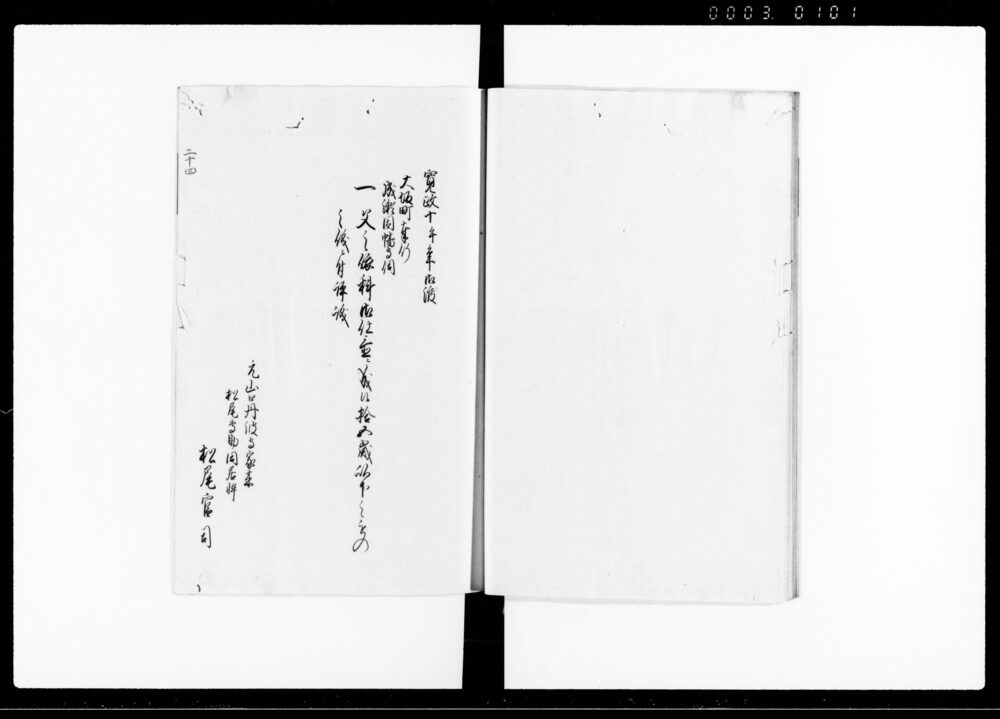 0003. 0101
寛政十午年御渡
大坂町奉行
成瀬因幡守伺
一 父之依科御仕置ニ成候拾五歳以下之もの
之儀ニ付評議
元山口丹波守家来
松尾 助同居忰
松尾宮司
二十四